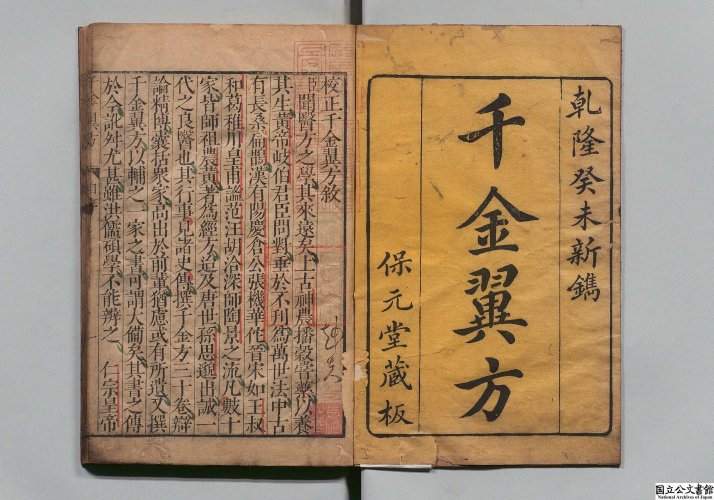 乾隆癸未新鐫
千金翼方
保元堂藏板
校正千金翼方敘
臣聞醫方之學其來遠矣上古神農播穀嘗藥以養
其生黃帝岐伯君臣問對垂於不刊為萬世法中古
有長桑扁鵲漢有陽慶倉公張機華佗晉宋如王叔
和葛稚川皇甫謐范汪胡洽深師陶景之流凡數十
家皆師祖農黃著為經方迨及唐世孫思邈出誠一
代之良醫也其行事見諸史傳撰千金方三十卷辯
論精博囊括衆家高出於前輩猶慮或有所遺又撰
千金翼方以輔之一家之書可謂大備矣其書之傳
於今訛舛尤甚雖洪儒碩學不能辯之 仁宗皇帝
国立公文書館
National Archives of Japan